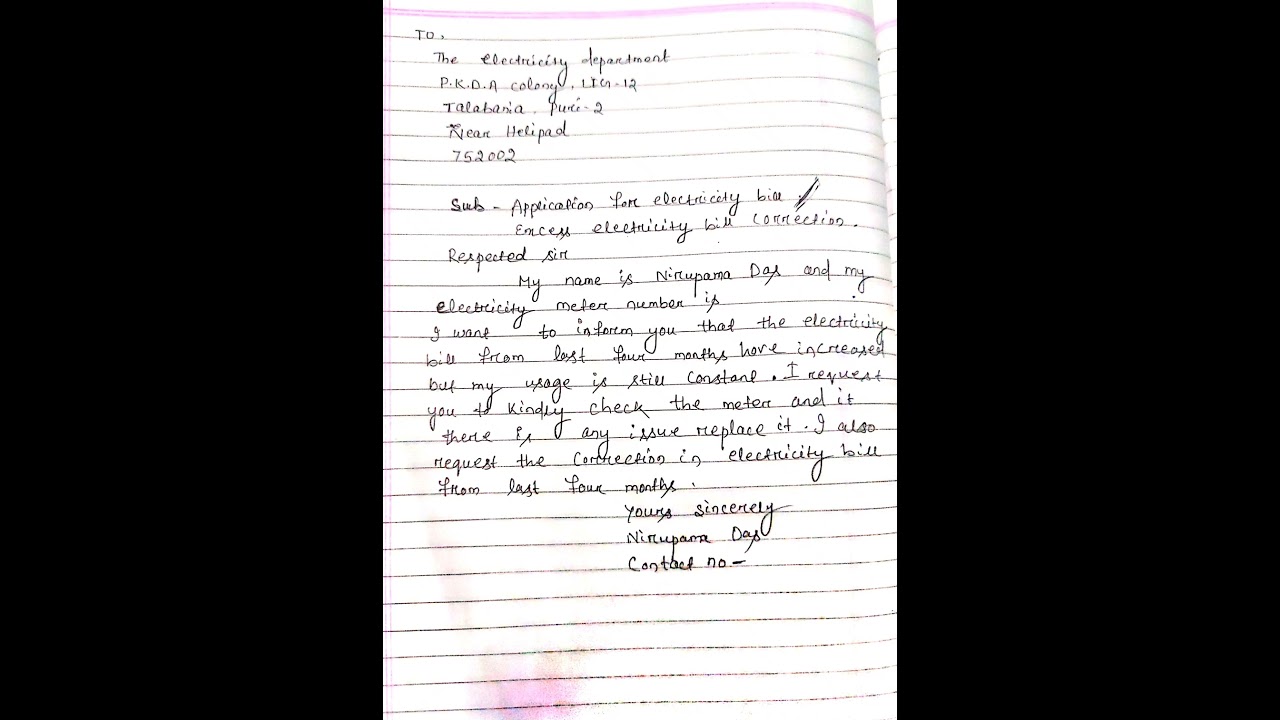 TO,
The electricity department
P.K.D.A colony, LIG-12
Talabania, Puri-2
Near Helipad
752002
Sub - Application for electricity bill
Excess electricity bill correction.
Respected sir
My name is Nirupama Das and my
electricity meter number is .
I want to inform you that the electricity
bill from last four months have increased
but my usage is still constant. I request
you to kindly check the meter and it
there is any issue replace it. I also
request the correction in electricity bill
from last four months.
Yours sincerely
Nirupama Das
Contact no -